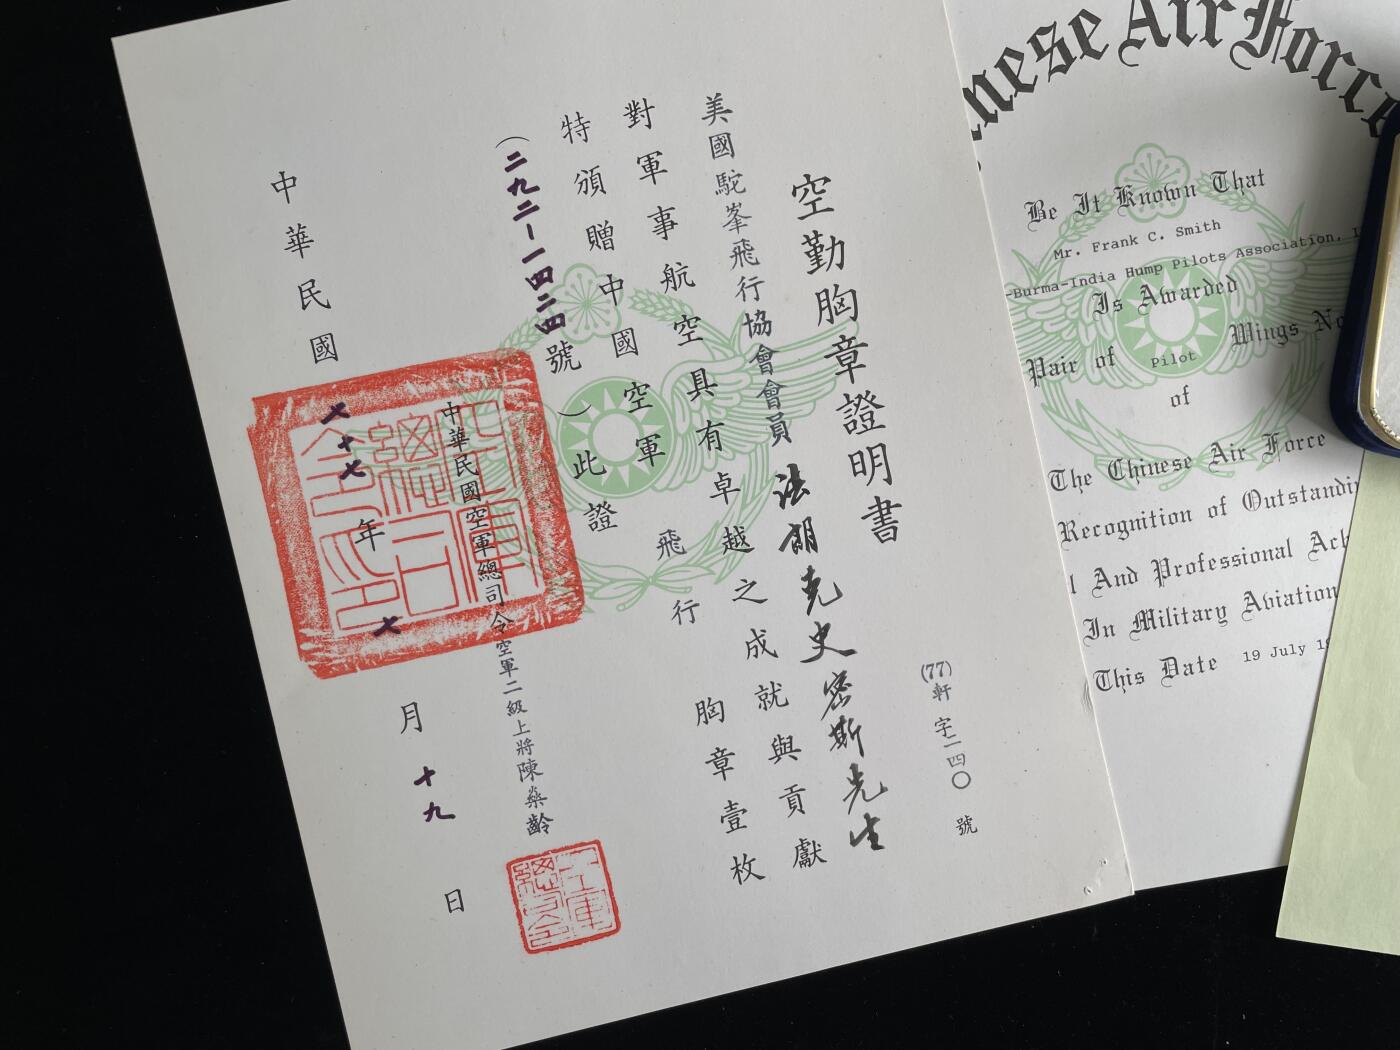 空勤胸章證明書
(77)軒字一四〇號
美國駝峯飛行協會會員法朗克史密斯先生
對軍事航空具有卓越之成就與貢獻
特頒贈中國空軍飛行胸章壹枚
(二九二-一四二四號)此證
中華民國空軍總司令空軍二級上將陳燊齡
中華民國七十七年七月十九日
nese Air Force
Be It Known That
Mr. Frank C. Smith
-Burma-India Hump Pilots Association, I
Is Awarded
Pair of Pilot Wings No
of
The Chinese Air Force
Recognition of Outstandi
l And Professional Ach
In Military Aviation
This Date 19 July 19